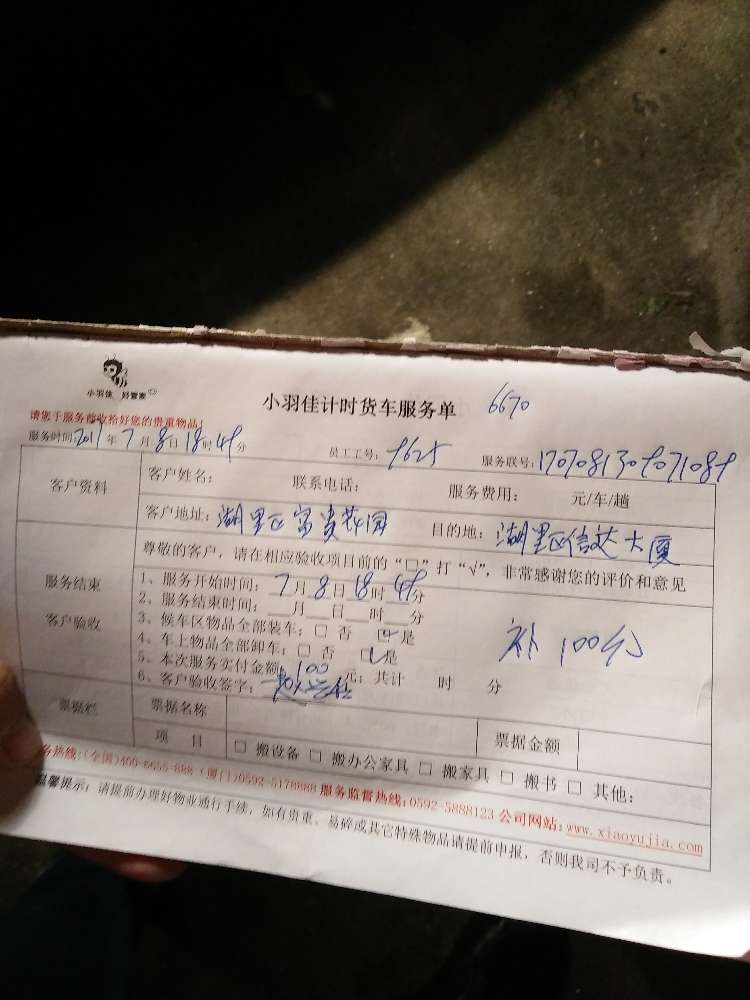 小羽佳 好管家
小羽佳计时货车服务单 6670
请您于服务前收拾好您的贵重物品!
服务时间:2017年7月8日18时49分 员工工号: 9625 服务联号:
客户资料
客户姓名: 联系电话: 服务费用: 元/车/趟
客户地址:湖里区富贵花园 目的地:湖里区信达大厦
服务结束
客户验收
尊敬的客户，请在相应验收项目前的“□”打“√”，非常感谢您的评价和意见
1、服务开始时间:7月8日18时49分
2、服务结束时间:__月__日__时__分
3、候车区物品全部装车: □ 否 ☑ 是
4、车上物品全部卸车: □ 否 ☑ 是
5、本次服务实付金额100元; 共计 时 分
补100分
6、客户验收签字:
票据栏
票据名称 票据金额
项 目 □ 搬设备 □ 搬办公家具 □ 搬家具 □ 搬书 □ 其他:
务热线:(全国)400-6655-888 (厦门)0592-5178888 服务监督热线:0592-5888123 公司网站:www.xiaoyujia.com
温馨提示: 请提前办理好物业通行手续，如有贵重、易碎或其它特殊物品请提前申报，否则我司不予负责。